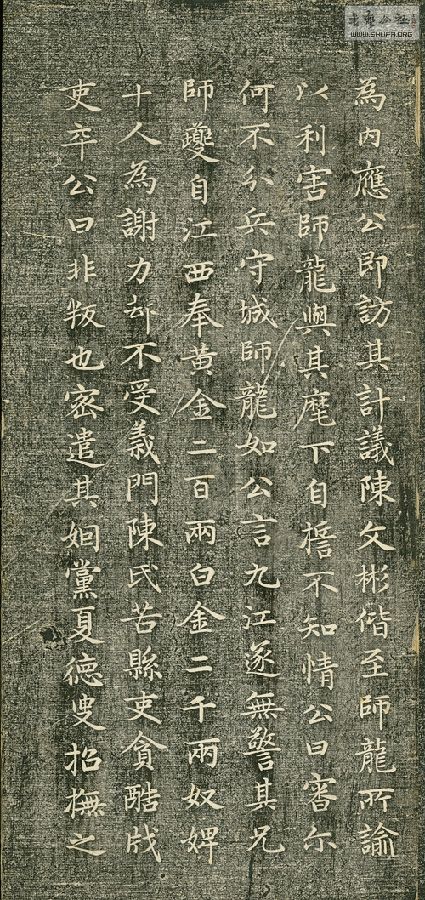 為內應公即訪其計議陳文彬偕至師龍所諭
以利害師龍與其麾下自擔不知情公曰審尔
何不分兵守城師龍如公言九江遂無警其兄
師夔自江西奉黃金二百兩白金二千兩奴婢
十人為謝力却不受義門陳氏苦縣吏貪酷戕
吏卒公曰非叛也密遣其姻黨夏德叟招撫之
WWW.SHUFA.ORG